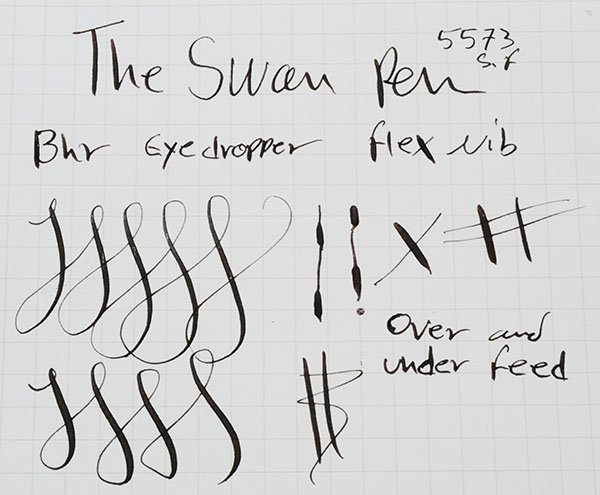 The Swan Pen 5573
S.F
Bhr Eyedropper flex nib
Over and
under feed